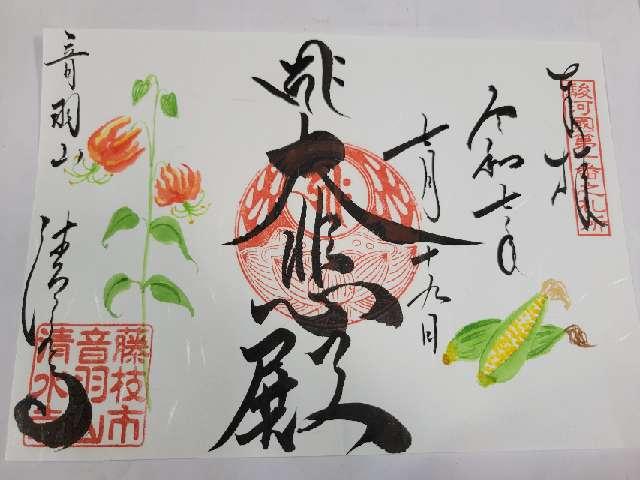 奉拝
駿河国第一番之札所
令和七年
七月十九日
大悲殿
音羽山
清水寺
藤枝市
音羽山
清水寺